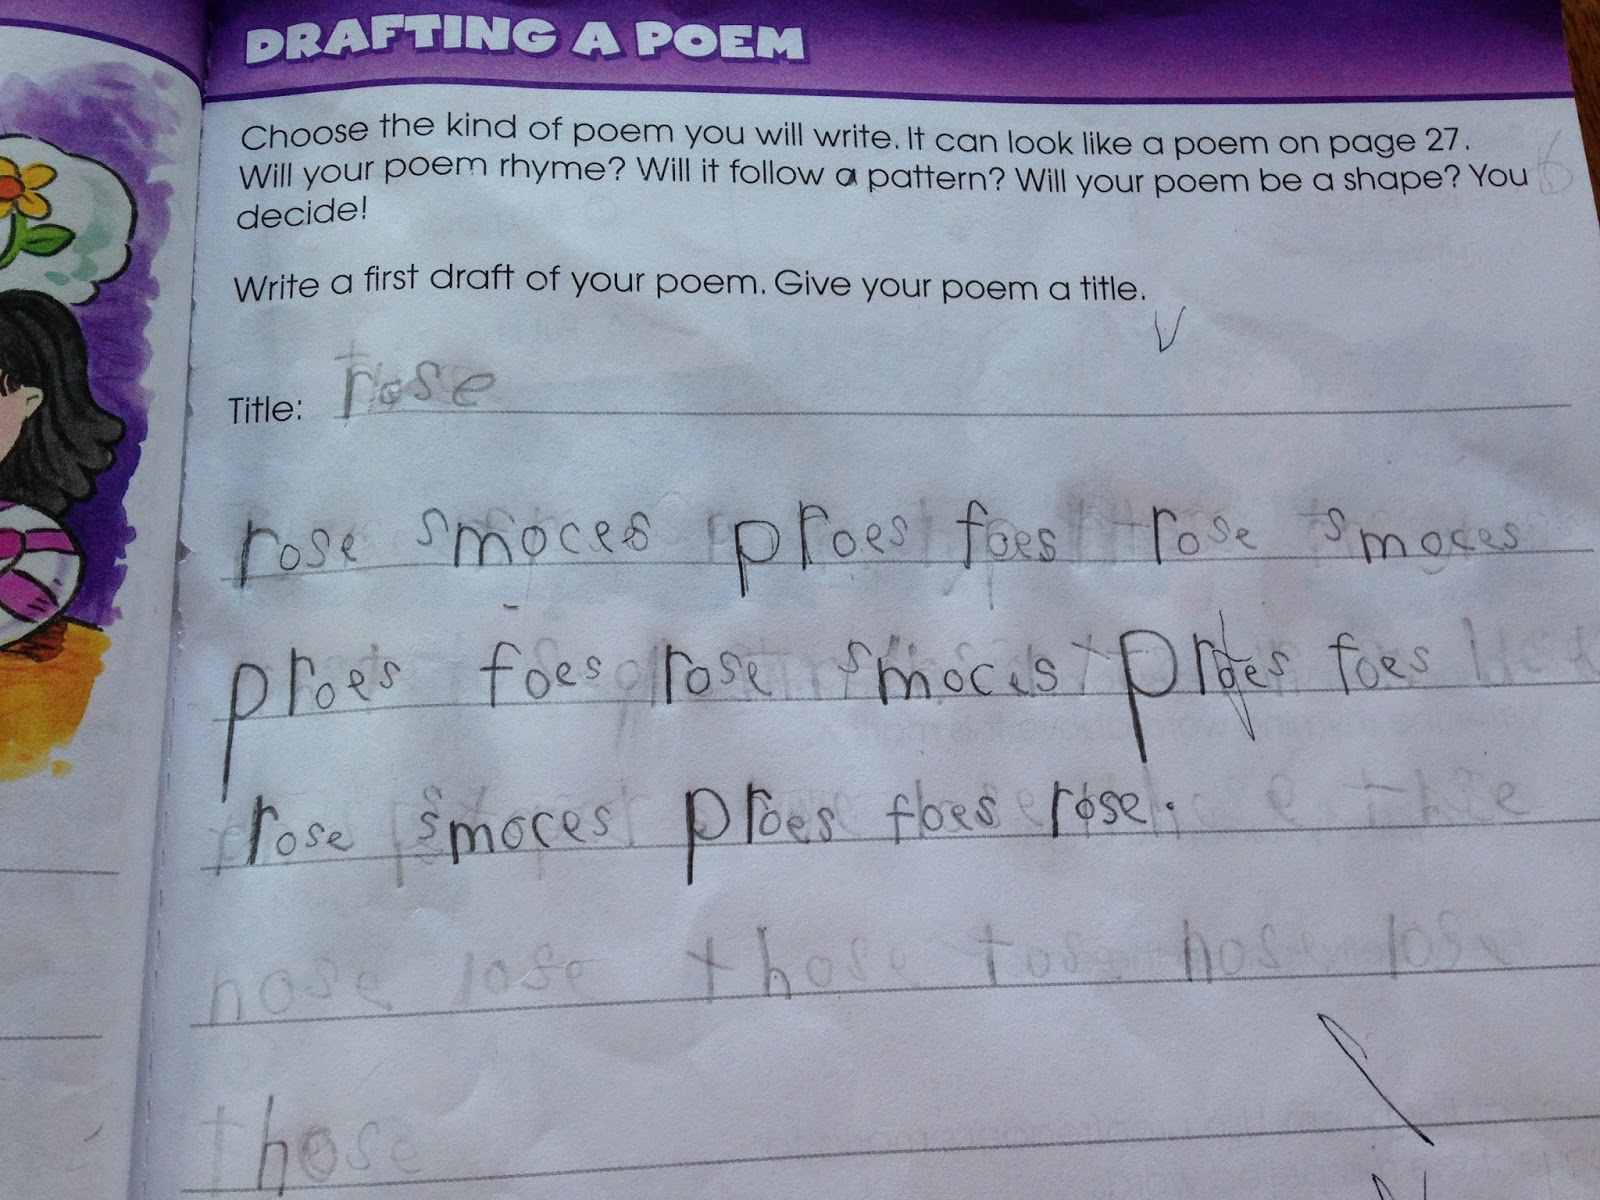 DRAFTING A POEM
Choose the kind of poem you will write. It can look like a poem on page 27.
Will your poem rhyme? Will it follow a pattern? Will your poem be a shape? You
decide!
Write a first draft of your poem. Give your poem a title.
Title: rose
rose smoces proes foes rose smoces
proes foes rose smoces proes foes
rose smoces proes foes rose.
nose lose those tose nose lose
those